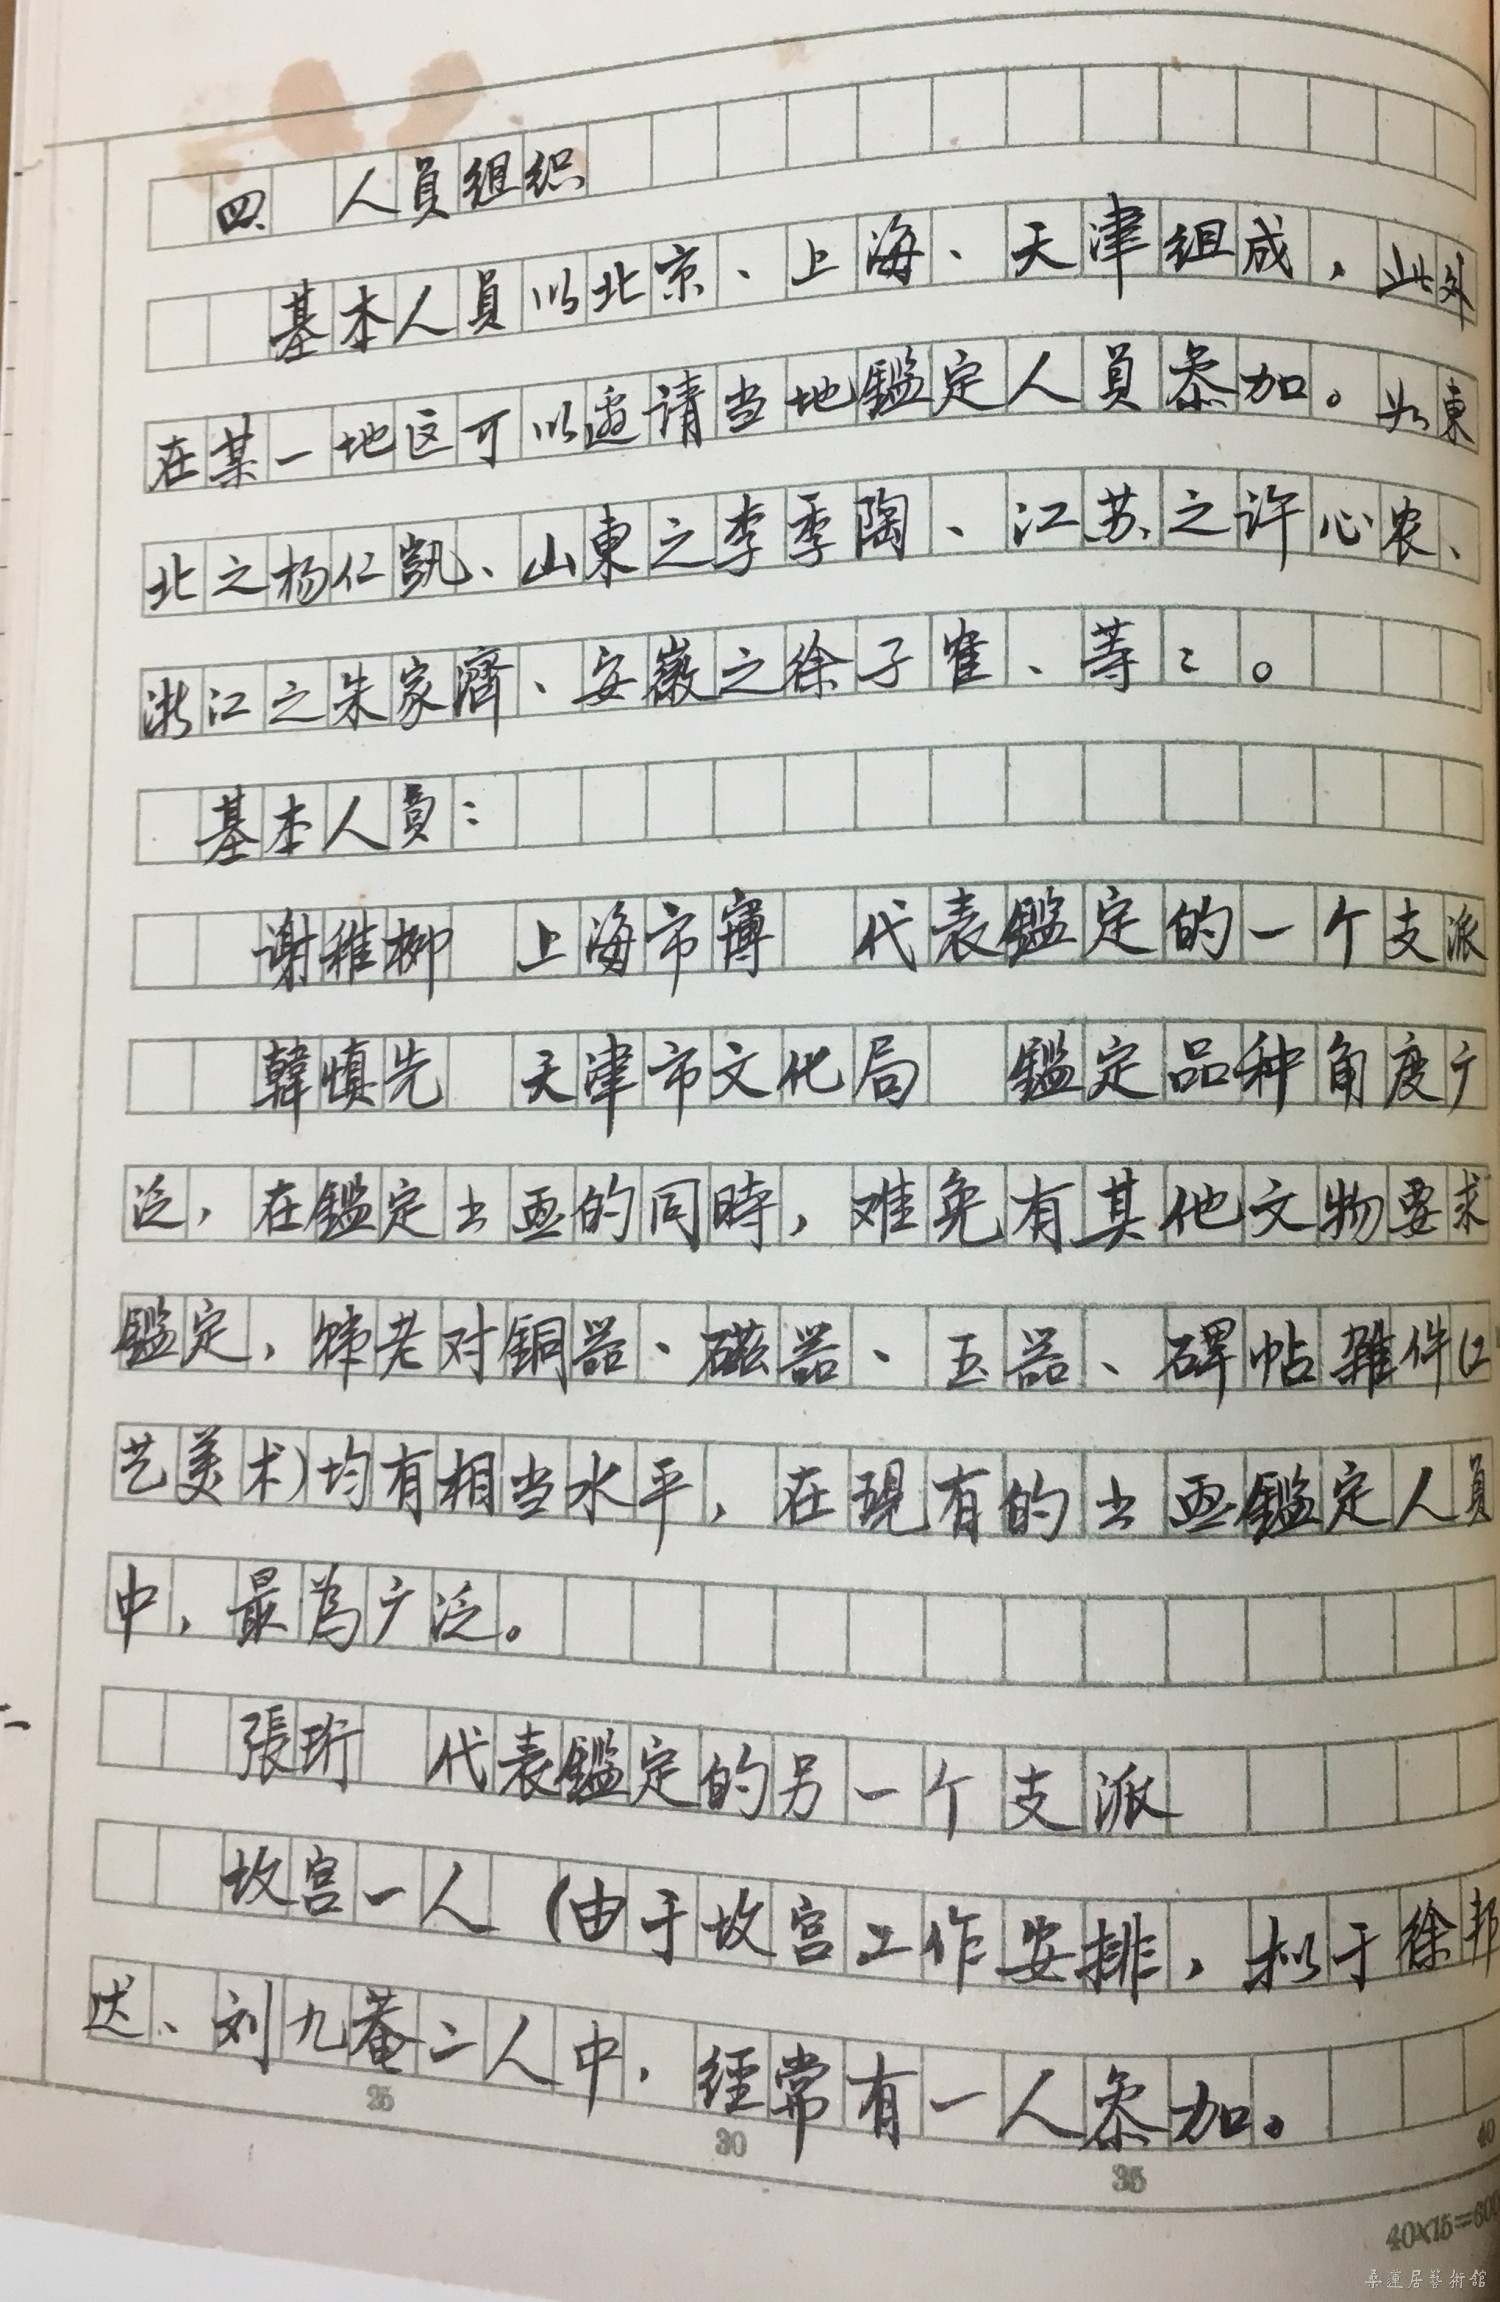 四、人員组织
基本人員以北京、上海、天津组成，此外
在某一地区可以邀请当地鑑定人員参加。如東
北之杨仁凯、山東之李季陶、江苏之许心农、
浙江之朱家濟、安徽之徐子隺、等々。
基本人員：
谢稚柳 上海市博 代表鑑定的一个支派
韓慎先 天津市文化局 鑑定品种角度广
泛，在鑑定书画的同時，难免有其他文物要求
鑑定，韩老对銅器、磁器、玉器、碑帖雜件(工
艺美术)均有相当水平，在現有的书画鑑定人員
中，最為广泛。
張珩 代表鑑定的另一个支派
故宫一人（由于故宫工作安排，拟于徐邦
达、刘九菴二人中，经常有一人参加。
25 30 35 40
40×15=600
桑蓮居藝術館